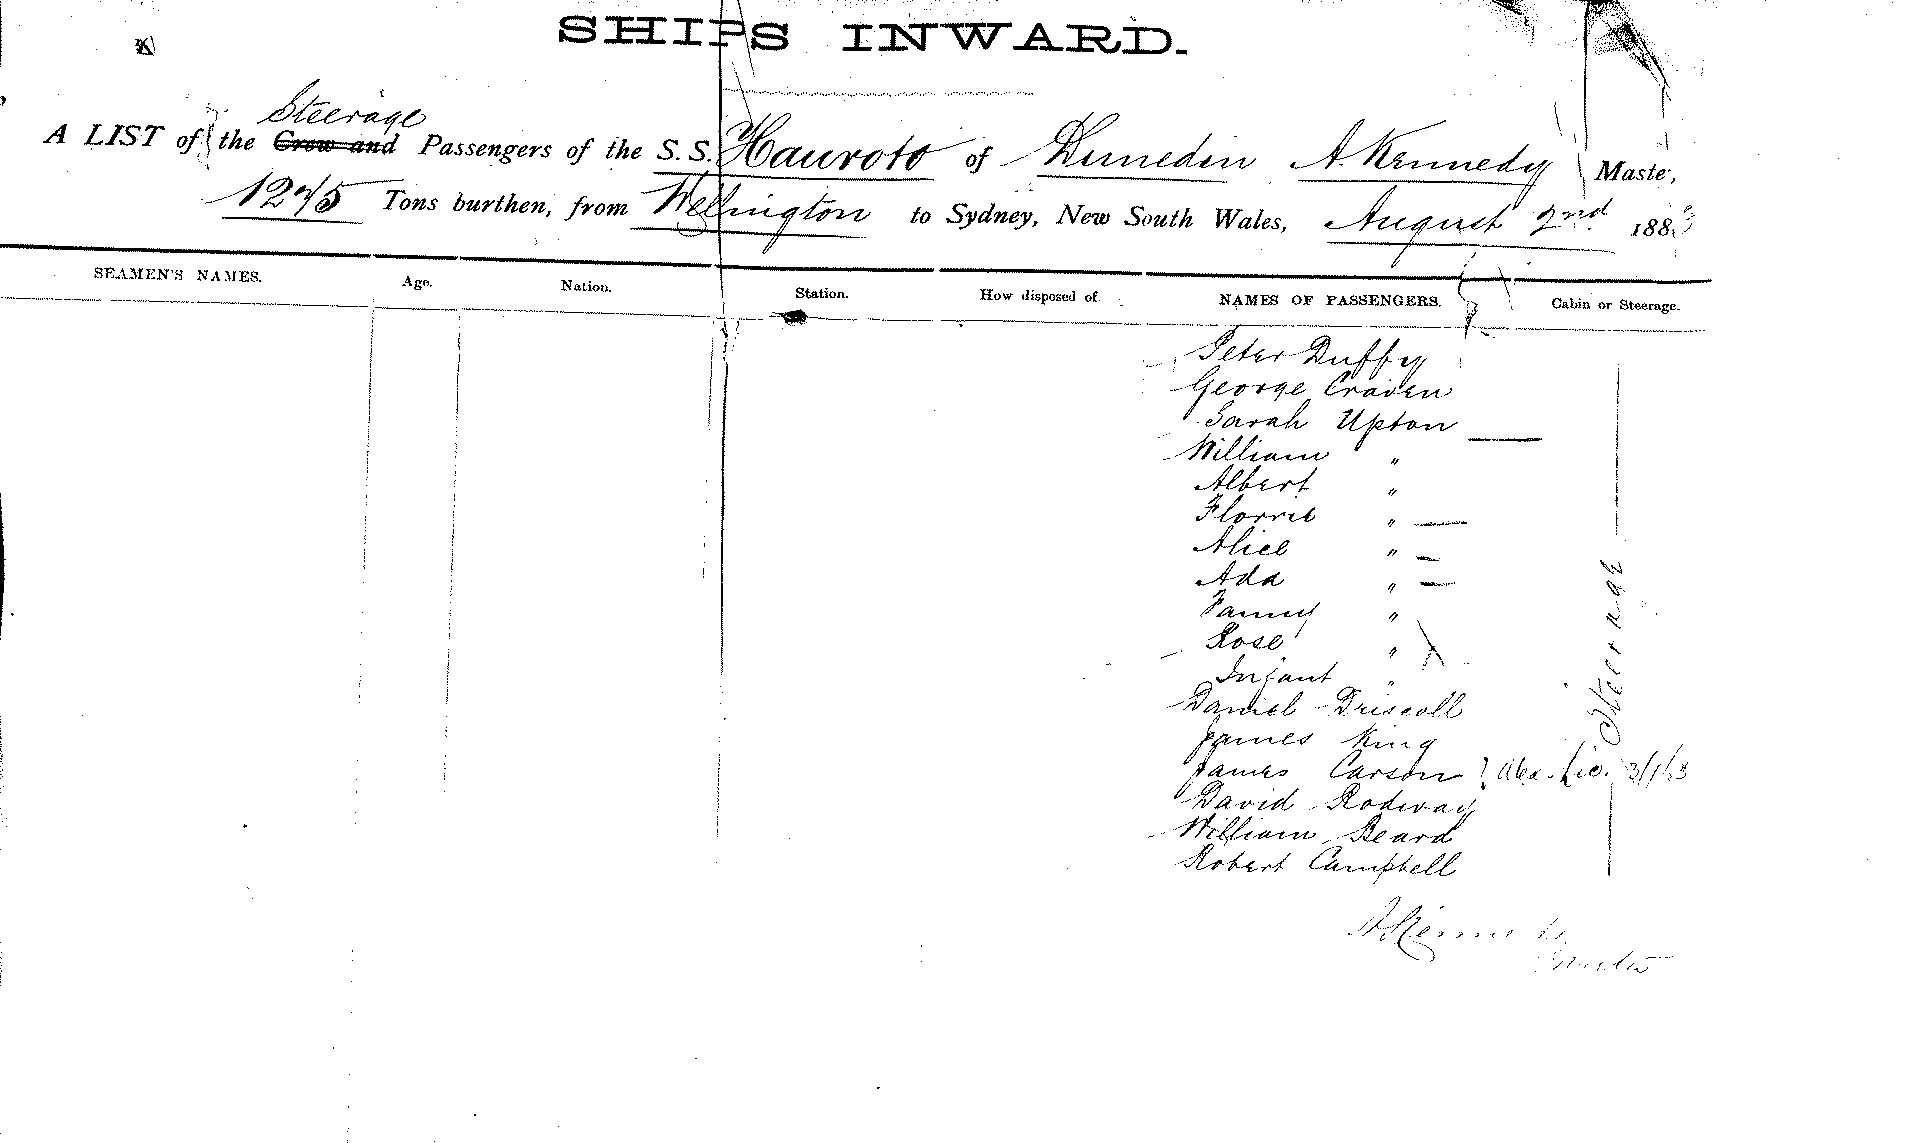 SHIPS INWARD.
Steerage
A LIST of the Crew and Passengers of the S.S. Hauroto of Dunedin A. Kennedy Master,
1275 Tons burthen, from Wellington to Sydney, New South Wales, August 2nd 188
SEAMEN'S NAMES. Age. Nation. Station. How disposed of. NAMES OF PASSENGERS. Cabin or Steerage.
Peter Duffy
George Craven
Sarah Upton
William "
Albert "
Florrie "
Alice "
Ada "
Fanny "
Rose "
Infant "
Daniel Driscoll
James King
James Carson
David Rodway
William Beard
Robert Campbell
Steerage
A Kennedy
Master